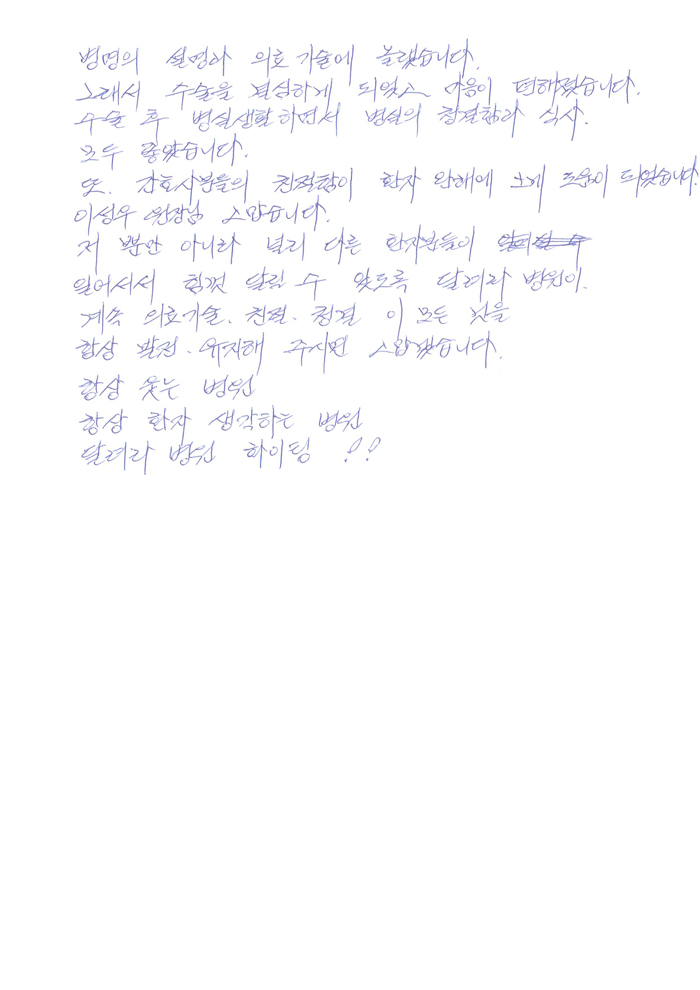 병명의 설명과 의료 기술에 놀랬습니다.
그래서 수술을 결심하게 되었고 마음이 편해졌습니다.
수술 후 병실생활하면서 병실의 청결함과 식사.
모두 좋았습니다.
또. 간호사분들의 친절함이 환자 완쾌에 크게 도움이 되었습니다.
이성우 원장님 고맙습니다.
저 뿐만 아니라 널리 다른 환자분들이
일어서서 힘껏 달릴 수 있도록 달려라 병원이.
계속 의료기술. 친절. 청결 이 모든 것을
항상 발전. 유지해 주시면 고맙겠습니다.
항상 웃는 병원
항상 환자 생각하는 병원
달려라 병원 화이팅 !!